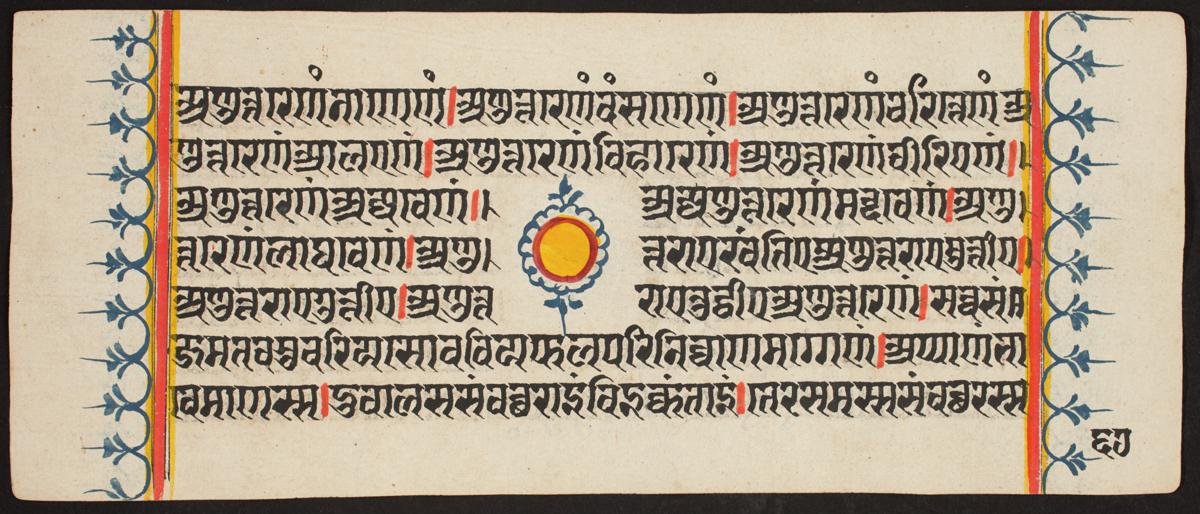 अणुत्तरेणंनाणेणं।अणुत्तरेणंदंसणेणं।अणुत्तरेणंचरित्तेणंअ
णुत्तरेणंआलएणं।अणुत्तरेणंविहारेणं।अणुत्तरेणंवीरिएणं।
अणुत्तरेणंअज्जवेणं।। अणुत्तरेणंमद्दवेणं।अणु।
त्तरेणंलाघवेणं।अणु। त्तराएखंतिएअणुत्तराएमुत्तीए।
अणुत्तराएगुत्तीए।अणुत्त राएतुट्ठीएअणुत्तरेणं।सच्चसं
जमतवसुचरियसोवचियफलपरिनिव्वाणमग्गेणं।अप्पाणंभा
वेमाणस्स।दुवालससंवच्छराइंविइक्कंताइं।तेरसमस्ससंवच्छरस्स
६७